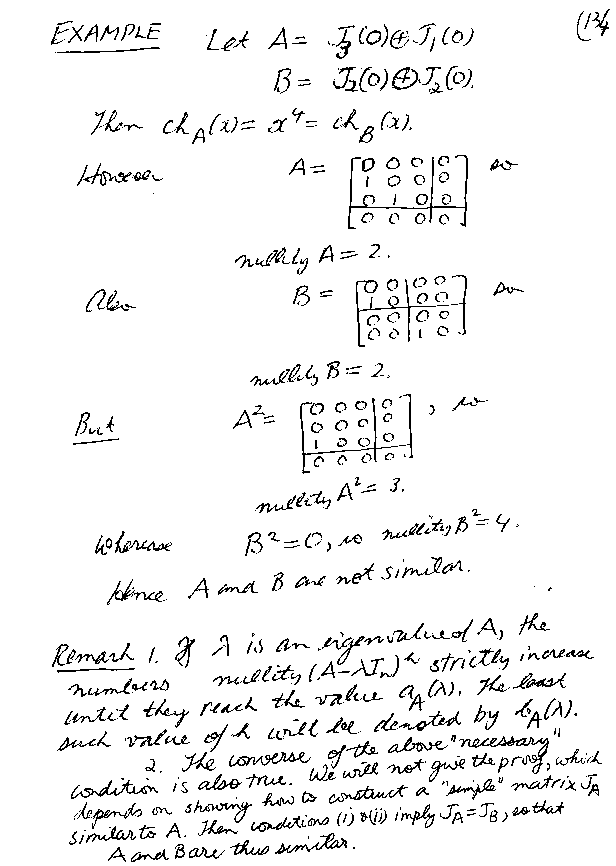 EXAMPLE Let A = J₃(0)⊕J₁(0) (134
B = J₂(0)⊕J₂(0).
Then ch_A(x) = x⁴ = ch_B(x).
However A = [0 0 0 | 0
1 0 0 | 0
0 1 0 | 0
0 0 0 | 0] so
nullity A = 2.
Also B = [0 0 | 0 0
1 0 | 0 0
0 0 | 0 0
0 0 | 1 0] so
nullity B = 2.
But A² = [0 0 0 | 0
0 0 0 | 0
1 0 0 | 0
0 0 0 | 0], so
nullity A² = 3.
Whereas B² = 0, so nullity B² = 4.
Hence A and B are not similar.
Remark 1. If λ is an eigenvalue of A, the
numbers nullity (A-λIₙ)ʰ strictly increase
until they reach the value a_A(λ). The least
such value of h will be denoted by b_A(λ).
2. The converse of the above "necessary"
condition is also true. We will not give the proof, which
depends on showing how to construct a "simple" matrix J_A
similar to A. Then conditions (i) & (ii) imply J_A = J_B, so that
A and B are thus similar.